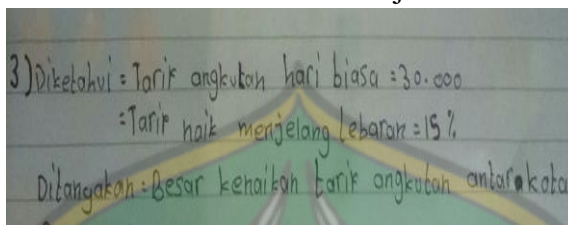 3) Diketahui = Tarif angkutan hari biasa = 30.000
= Tarif naik menjelang Lebaran = 15%
Ditanyakan = Besar kenaikan tarif angkutan antar kota